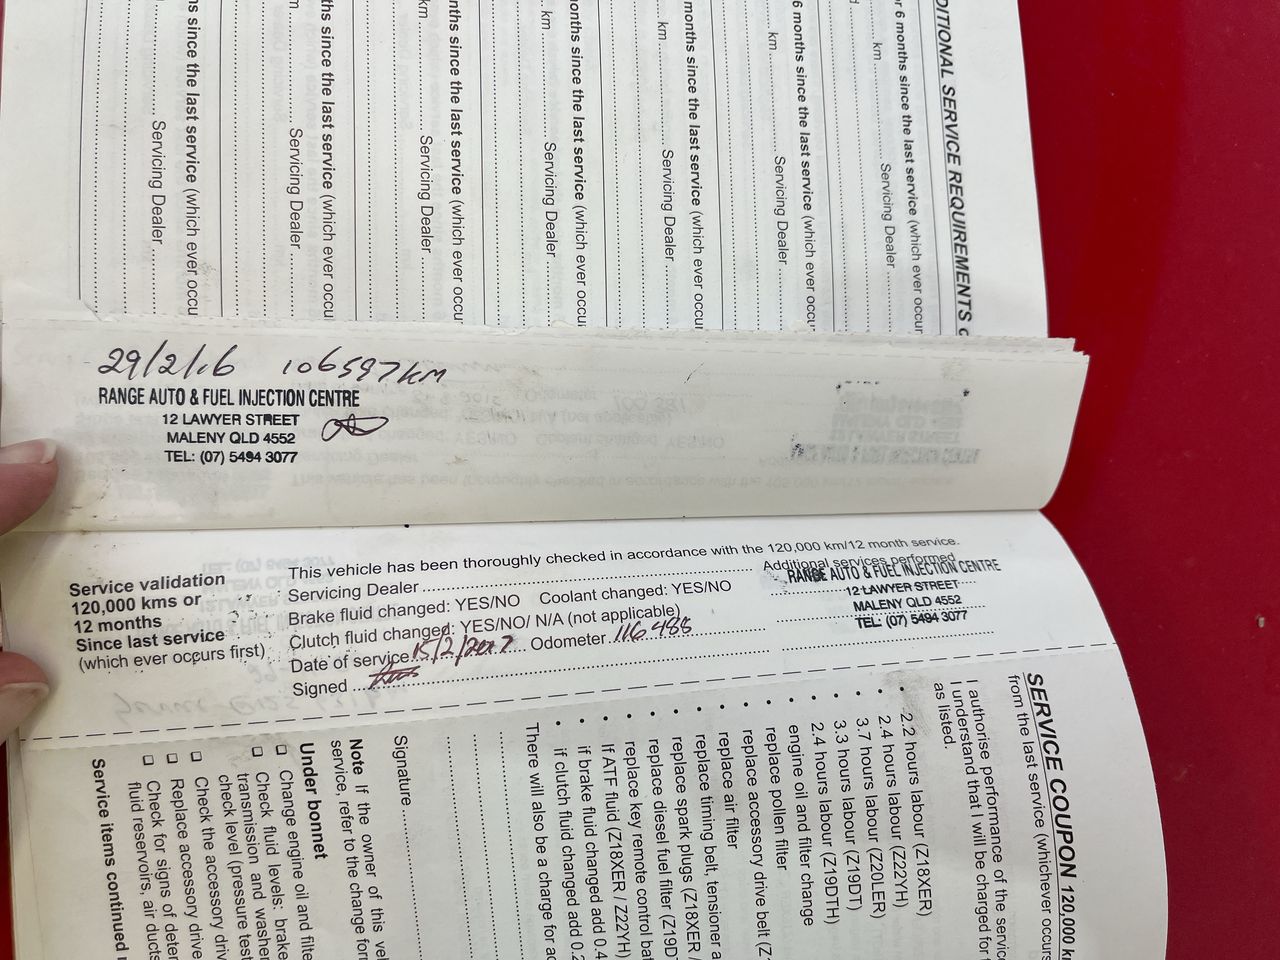 DITIONAL SERVICE REQUIREMENTS
r 6 months since the last service (which ever occur
km Servicing Dealer
6 months since the last service (which ever occur
km Servicing Dealer
months since the last service (which ever occur
km Servicing Dealer
onths since the last service (which ever occur
km Servicing Dealer
nths since the last service (which ever occu
km Servicing Dealer
ths since the last service (which ever occu
m Servicing Dealer
hs since the last service (which ever occu
Servicing Dealer
29/2/16 106597KM
RANGE AUTO & FUEL INJECTION CENTRE
12 LAWYER STREET
MALENY QLD 4552
TEL: (07) 5494 3077
Service validation
120,000 kms or
12 months
Since last service
(which ever occurs first)
This vehicle has been thoroughly checked in accordance with the 120,000 km/12 month service.
Servicing Dealer
Additional services performed
Brake fluid changed: YES/NO Coolant changed: YES/NO
Clutch fluid changed: YES/NO/ N/A (not applicable)
Date of service 15/2/2017 Odometer 116 488
Signed
RANGE AUTO & FUEL INJECTION CENTRE
12 LAWYER STREET
MALENY QLD 4552
TEL: (07) 5494 3077
SERVICE COUPON 120,000 k
from the last service (whichever occurs
I authorise performance of the service
I understand that I will be charged for
as listed.
• 2.2 hours labour (Z18XER)
• 2.4 hours labour (Z22YH)
• 3.7 hours labour (Z20LER)
• 3.3 hours labour (Z19DT)
• 2.4 hours labour (Z19DTH)
• engine oil and filter change
• replace pollen filter
• replace accessory drive belt (Z
• replace air filter
• replace timing belt, tensioner a
• replace spark plugs (Z18XER /
• replace diesel fuel filter (Z19D
• replace key remote control bat
• If ATF fluid (Z18XER / Z22YH)
• if brake fluid changed add 0.4
• if clutch fluid changed add 0.2
There will also be a charge for ad
Signature
Note If the owner of this veh
service, refer to the change for
Under bonnet
❑ Change engine oil and filte
❑ Check fluid levels: brake
transmission and washer
check level (pressure test
❑ Check the accessory driv
❑ Replace accessory drive
❑ Check for signs of deter
fluid reservoirs, air ducts
Service items continued